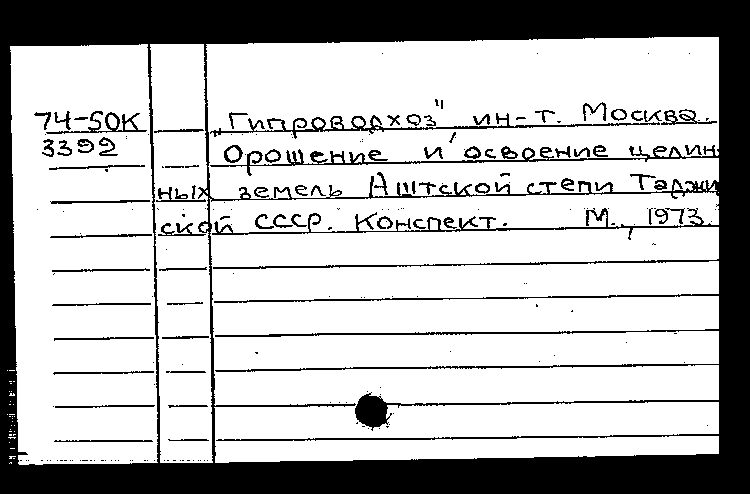 74-50К „Гипроводхоз" ин-т. Москва.
3392 Орошение и освоение целин-
ных земель Аштской степи Таджи
ской СССР. Конспект. М., 1973.